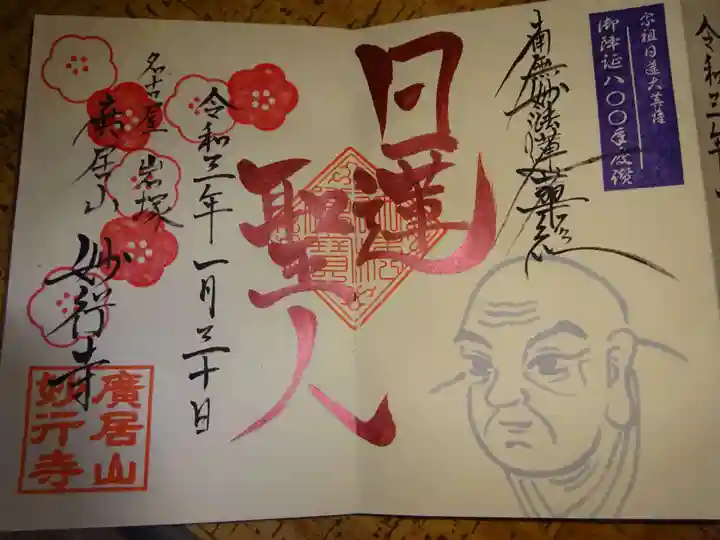 宗祖日蓮大菩薩
御降誕八〇〇年慶讃
南無妙法蓮華経
日蓮
聖人
令和三年一月三十日
名古屋 岩塚
廣居山 妙行寺
廣居山
妙行寺
令和三年